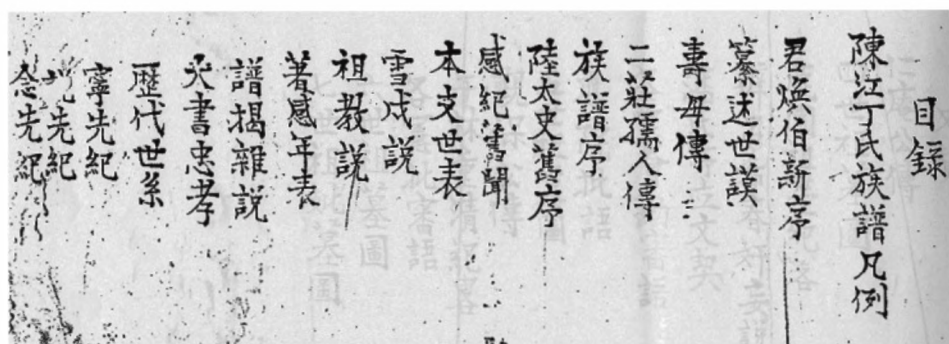 目錄
陳江丁氏族譜凡例
君煥伯新序
纂述世謨
壽母傳
二莊孺人傳
族譜序
陸太史舊序
感紀舊聞
本支世表
雪戍說
祖教說
著感年表
譜揭雜說
大書忠孝
歷代世系
寧先紀
先紀
念先紀